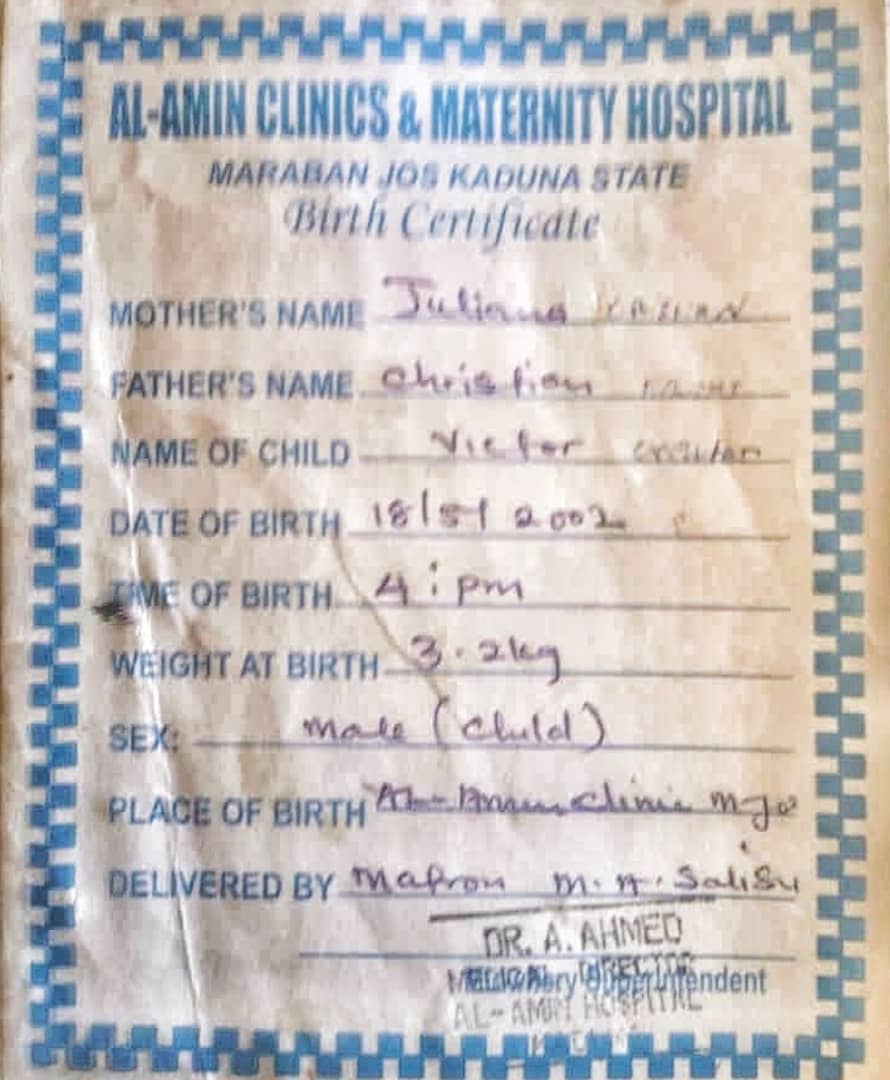 AL-AMIN CLINICS & MATERNITY HOSPITAL
MARABAN JOS KADUNA STATE
Birth Certificate
MOTHER'S NAME Juliana
FATHER'S NAME Christian
NAME OF CHILD Victor
DATE OF BIRTH 18/5/ 2002
TIME OF BIRTH 4:pm
WEIGHT AT BIRTH 3.2kg
SEX: male (child)
PLACE OF BIRTH AL-Amin clinic m-Jos
DELIVERED BY Matron M. A. Salisu
DR. A. AHMED
MEDICAL DIRECTOR
AL-AMIN HOSPITAL